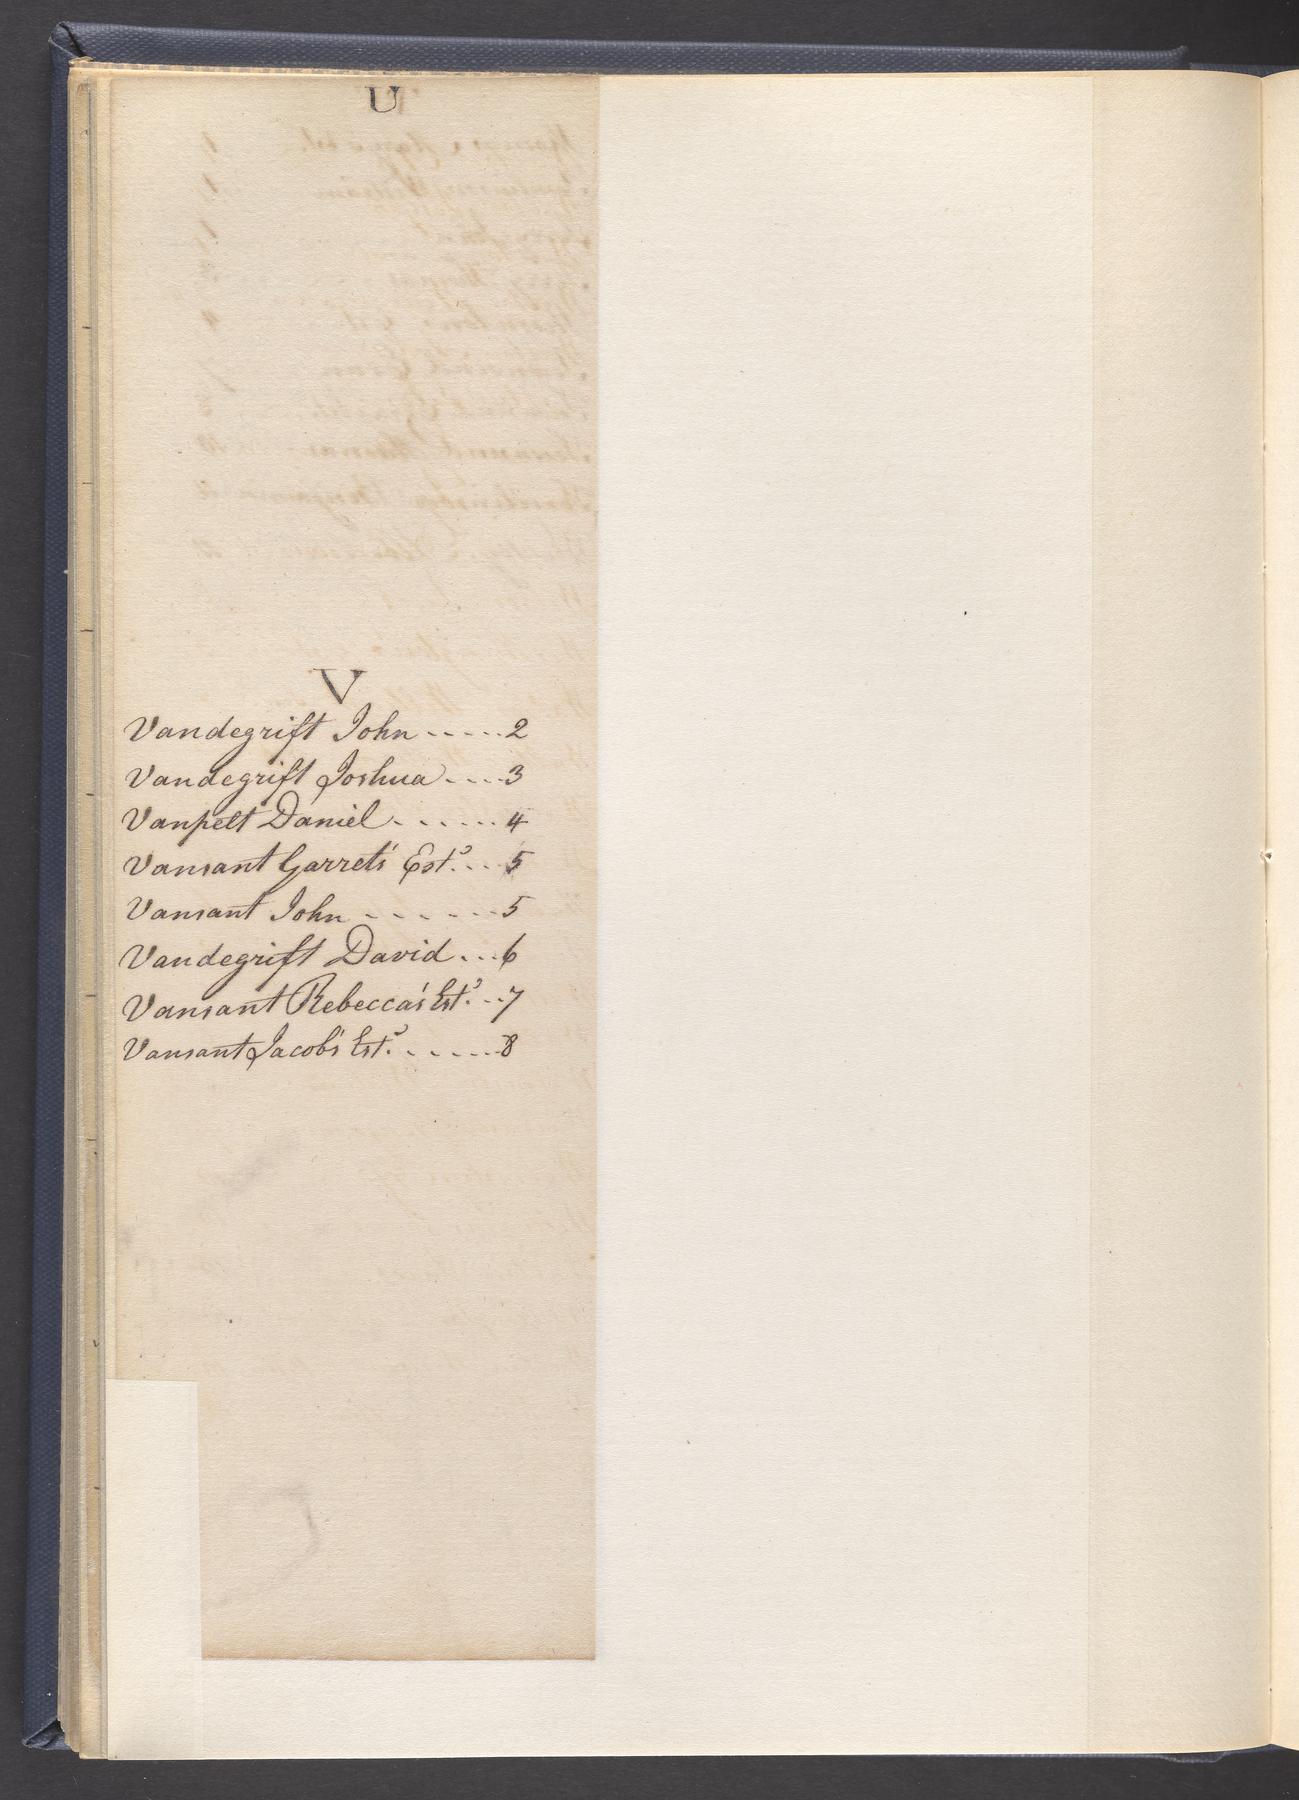 U
V
Vandegrift John - - - - - 2
Vandegrift Joshua - - - - 3
Vanpelt Daniel - - - - - - 4
Vansant Garret's Est.ᵉ - - - 5
Vansant John - - - - - - 5
Vandegrift David - - - 6
Vansant Rebecca's Est.ᵉ - - 7
Vansant Jacob's Est.ᵉ - - - - - - 8